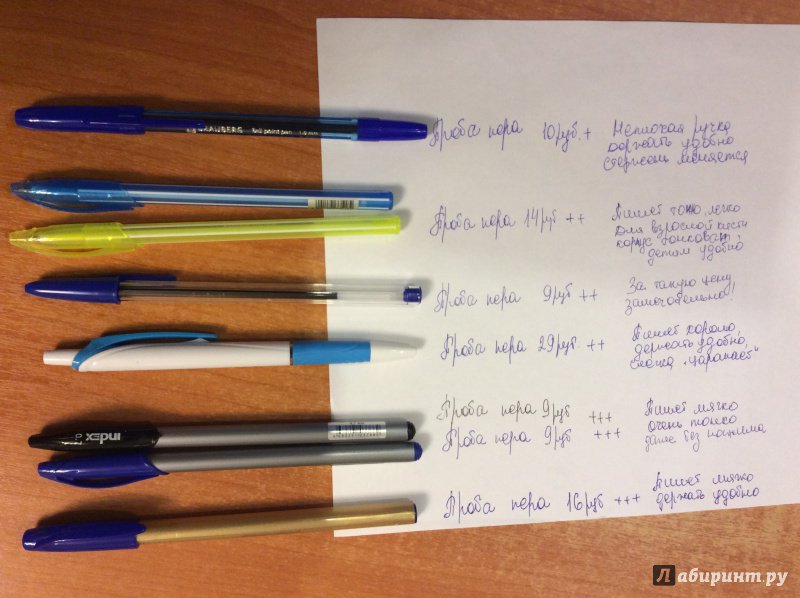 BRAUBERG Ball point pen 1.0 mm
Проба пера 10 руб. + Неплохая ручка
держать удобно
стержень меняется
Проба пера 14 руб ++ Пишет тонко, легко
для взрослой кисти
корпус тонковат,
детям удобно
Проба пера 9 руб ++ За такую цену
замечательно!
Проба пера 29 руб. ++ Пишет хорошо,
держать удобно,
слегка "царапает"
index
Проба пера 9 руб +++ Пишет мягко
очень тонко
Проба пера 9 руб +++ даже без нажима
Проба пера 16 руб +++ Пишет мягко
держать удобно
Лабиринт.ру